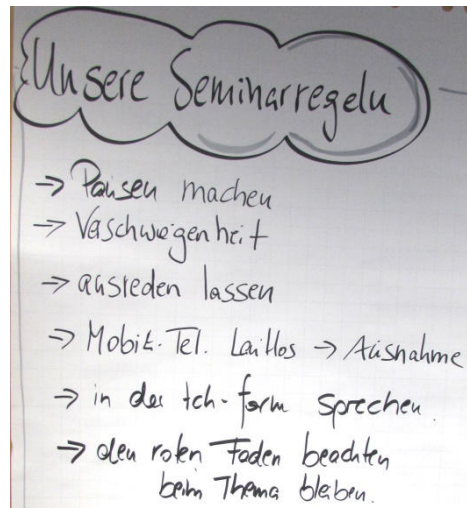 Unsere Seminarregeln
→ Pausen machen
→ Verschwiegenheit
→ ausreden lassen
→ Mobil-Tel. Lautlos → Ausnahme
→ in der Ich-form sprechen.
→ den roten Faden beachten
beim Thema bleiben.